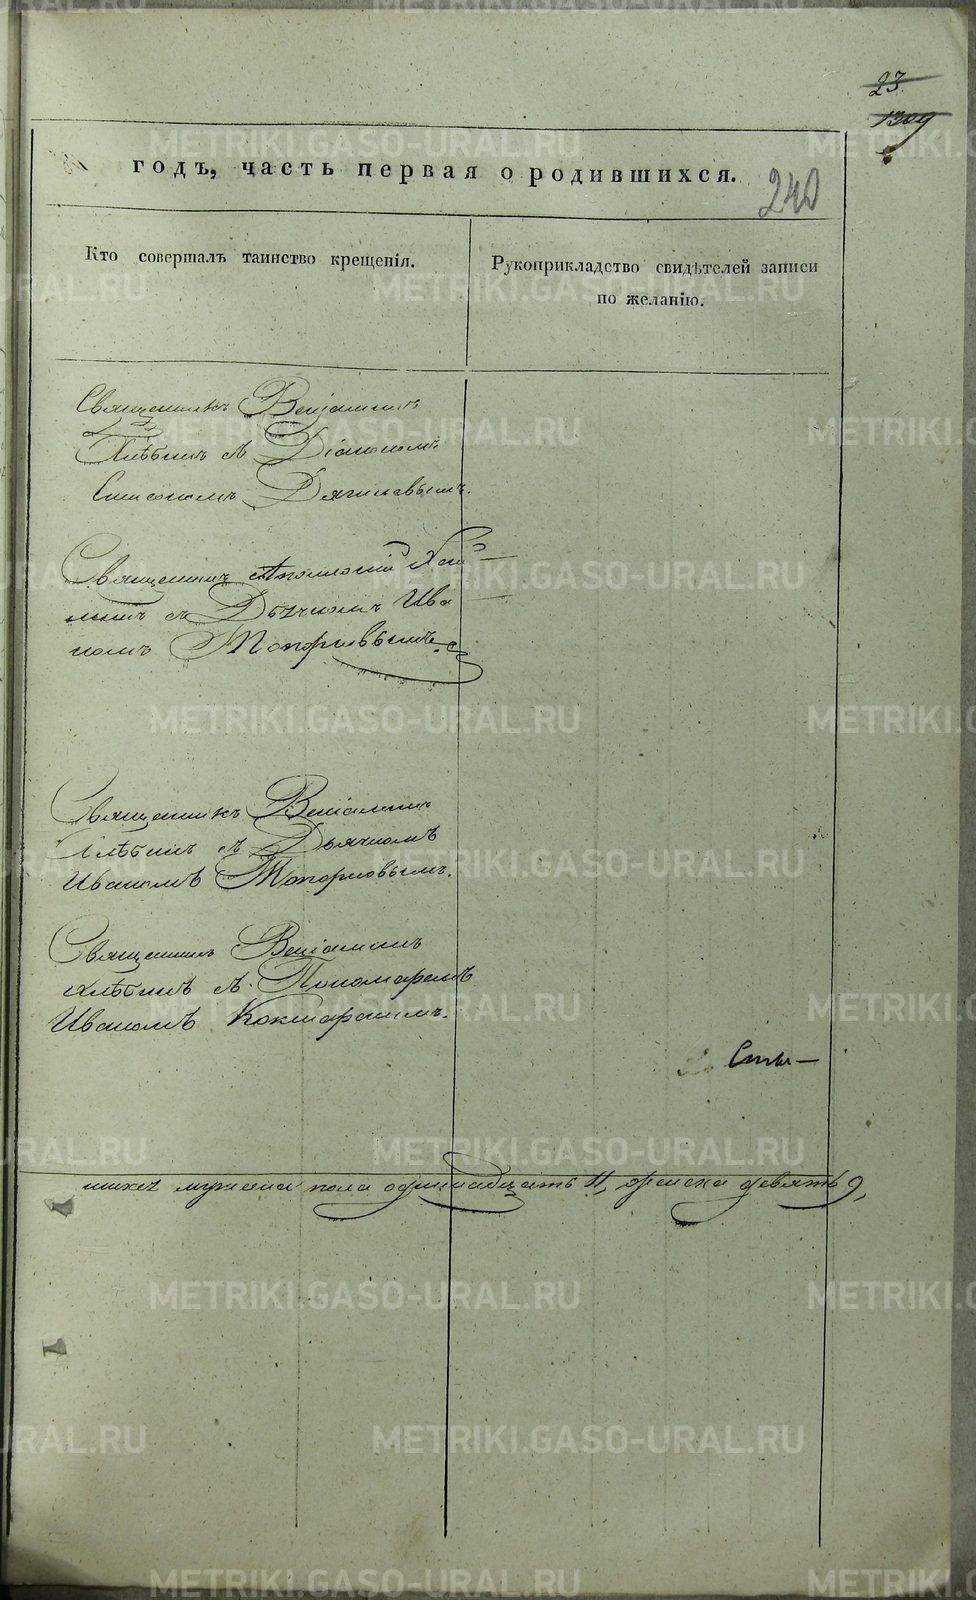 23.
1309
годъ, часть первая о родившихся.
240
Кто совершалъ таинство крещенія.
Рукоприкладство свидѣтелей записи
по желанію.
Священникъ Веніаминъ
Хлѣбинъ съ Діакономъ
Симеономъ
Священникъ Аполлоній
съ Дьячкомъ Ива
номъ Топорковымъ
Священникъ Веніаминъ
Хлѣбинъ съ Дьячкомъ
Иваномъ Топорковымъ.
Священникъ Веніаминъ
Хлѣбинъ съ Пономаремъ
Иваномъ Кокшарскимъ.
шихся мужска пола одиннадцать 11, женска девять 9,
METRIKI.GASO-URAL.RU